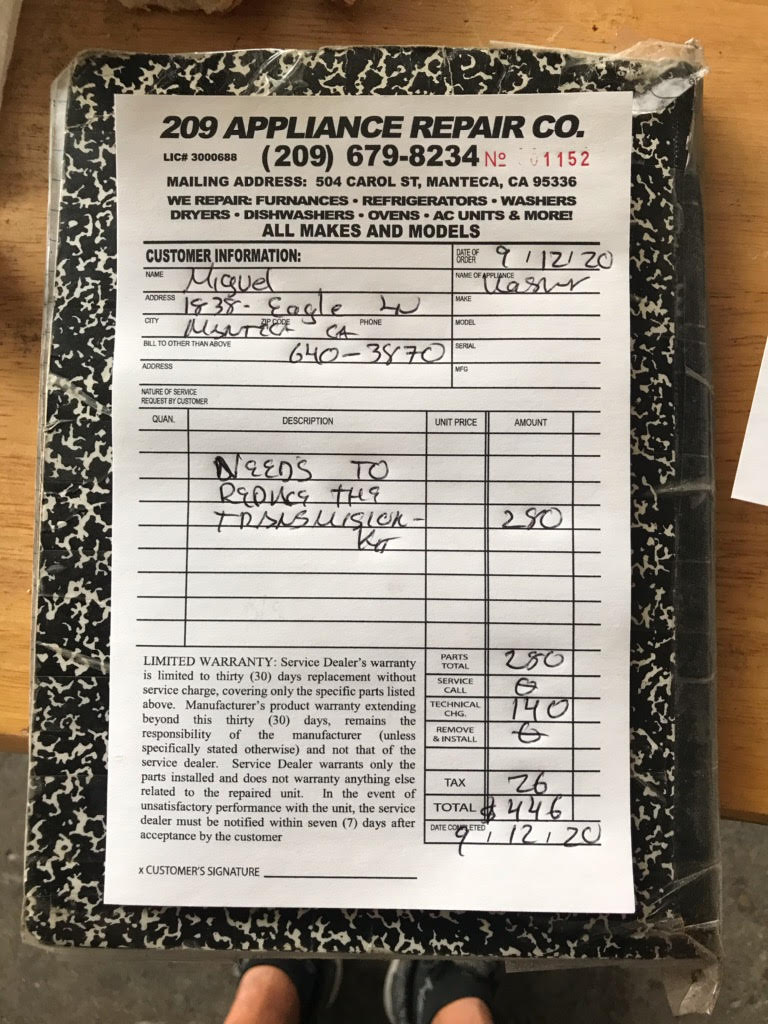 209 APPLIANCE REPAIR CO.
LIC# 3000688 (209) 679-8234 Nº 01152
MAILING ADDRESS: 504 CAROL ST, MANTECA, CA 95336
WE REPAIR: FURNANCES • REFRIGERATORS • WASHERS
DRYERS • DISHWASHERS • OVENS • AC UNITS & MORE!
ALL MAKES AND MODELS
CUSTOMER INFORMATION: DATE OF ORDER 9/12/20
NAME Miguel NAME OF APPLIANCE Washer
ADDRESS 1838- Eagle LN MAKE
CITY MANTECA ZIP CODE CA PHONE MODEL
BILL TO OTHER THAN ABOVE 640-3870 SERIAL
ADDRESS MFG
NATURE OF SERVICE
REQUEST BY CUSTOMER
QUAN. DESCRIPTION UNIT PRICE AMOUNT
NEEDS TO
THE
TRANSMISION- 280
KIT
LIMITED WARRANTY: Service Dealer's warranty
is limited to thirty (30) days replacement without
service charge, covering only the specific parts listed
above. Manufacturer's product warranty extending
beyond this thirty (30) days, remains the
responsibility of the manufacturer (unless
specifically stated otherwise) and not that of the
service dealer. Service Dealer warrants only the
parts installed and does not warranty anything else
related to the repaired unit. In the event of
unsatisfactory performance with the unit, the service
dealer must be notified within seven (7) days after
acceptance by the customer
PARTS TOTAL 280
SERVICE CALL 0
TECHNICAL CHG. 140
REMOVE & INSTALL 0
TAX 26
TOTAL $446
DATE COMPLETED 9/12/20
x CUSTOMER'S SIGNATURE